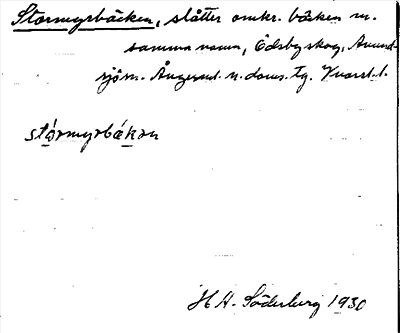 Stormyrbäcken, slåtter omkr. bäcken m.
samma namn, Edsbyskog, Anund-
sjöm. Ångerml. n. doms. Tg.
stórmyrbákan
H A. Söderberg 1930